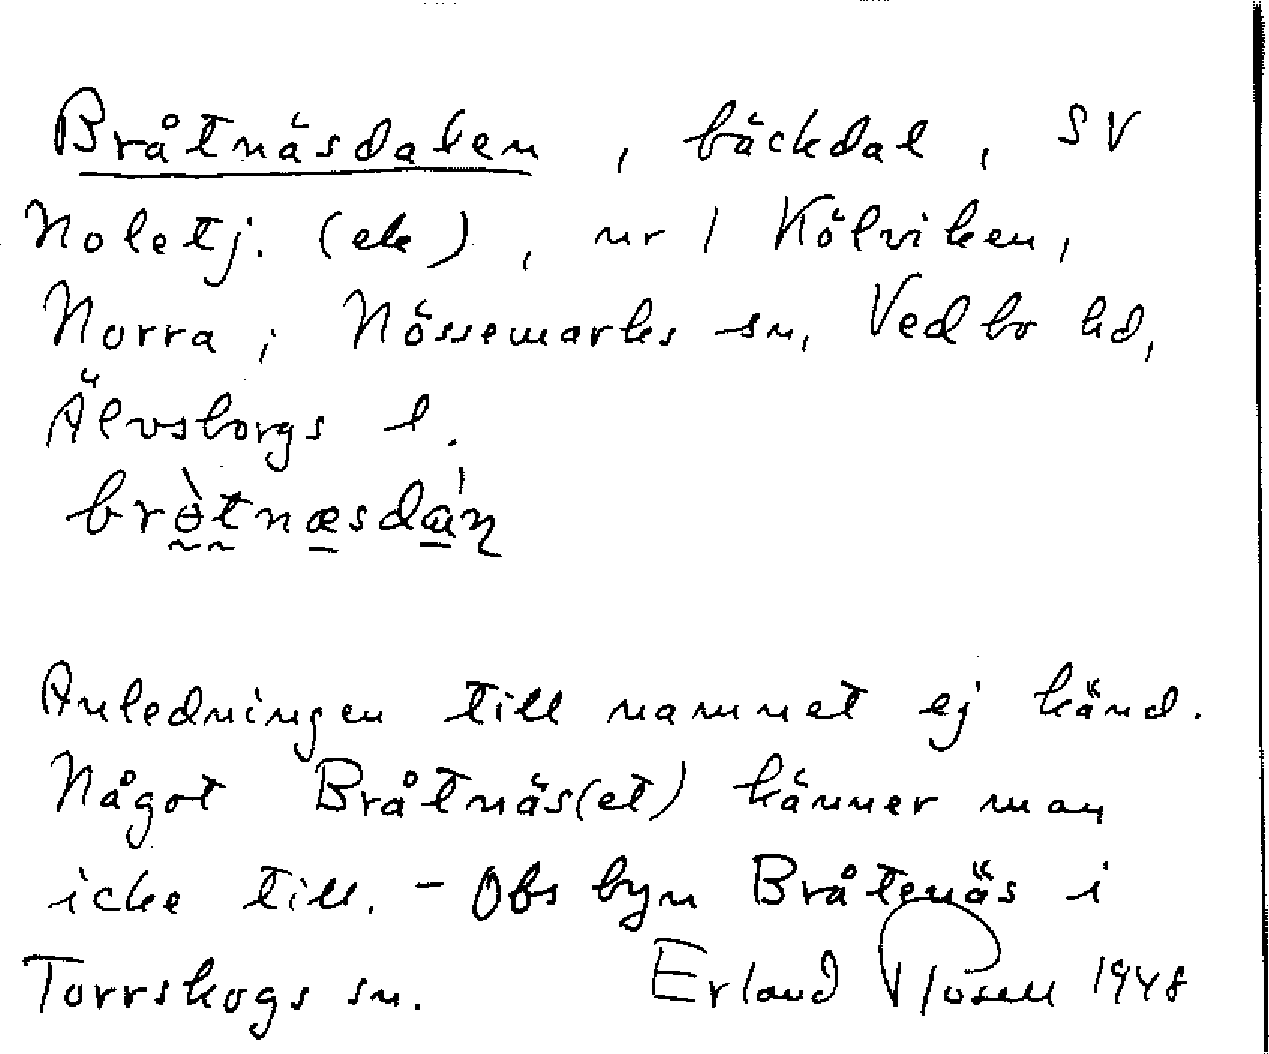 Bråtnäsdalen, bäckdal, SV
Noletj. (ek), nr 1 Kölviken,
Norra; Nössemarks sn, Vedbo hd,
Älvsborgs l.
brètnæsdán
Anledningen till namnet ej känd.
Något Bråtnäs(et) känner man
icke till. - Obs byn Bråtenäs i
Torrskogs sn. Erland Rosell 1948